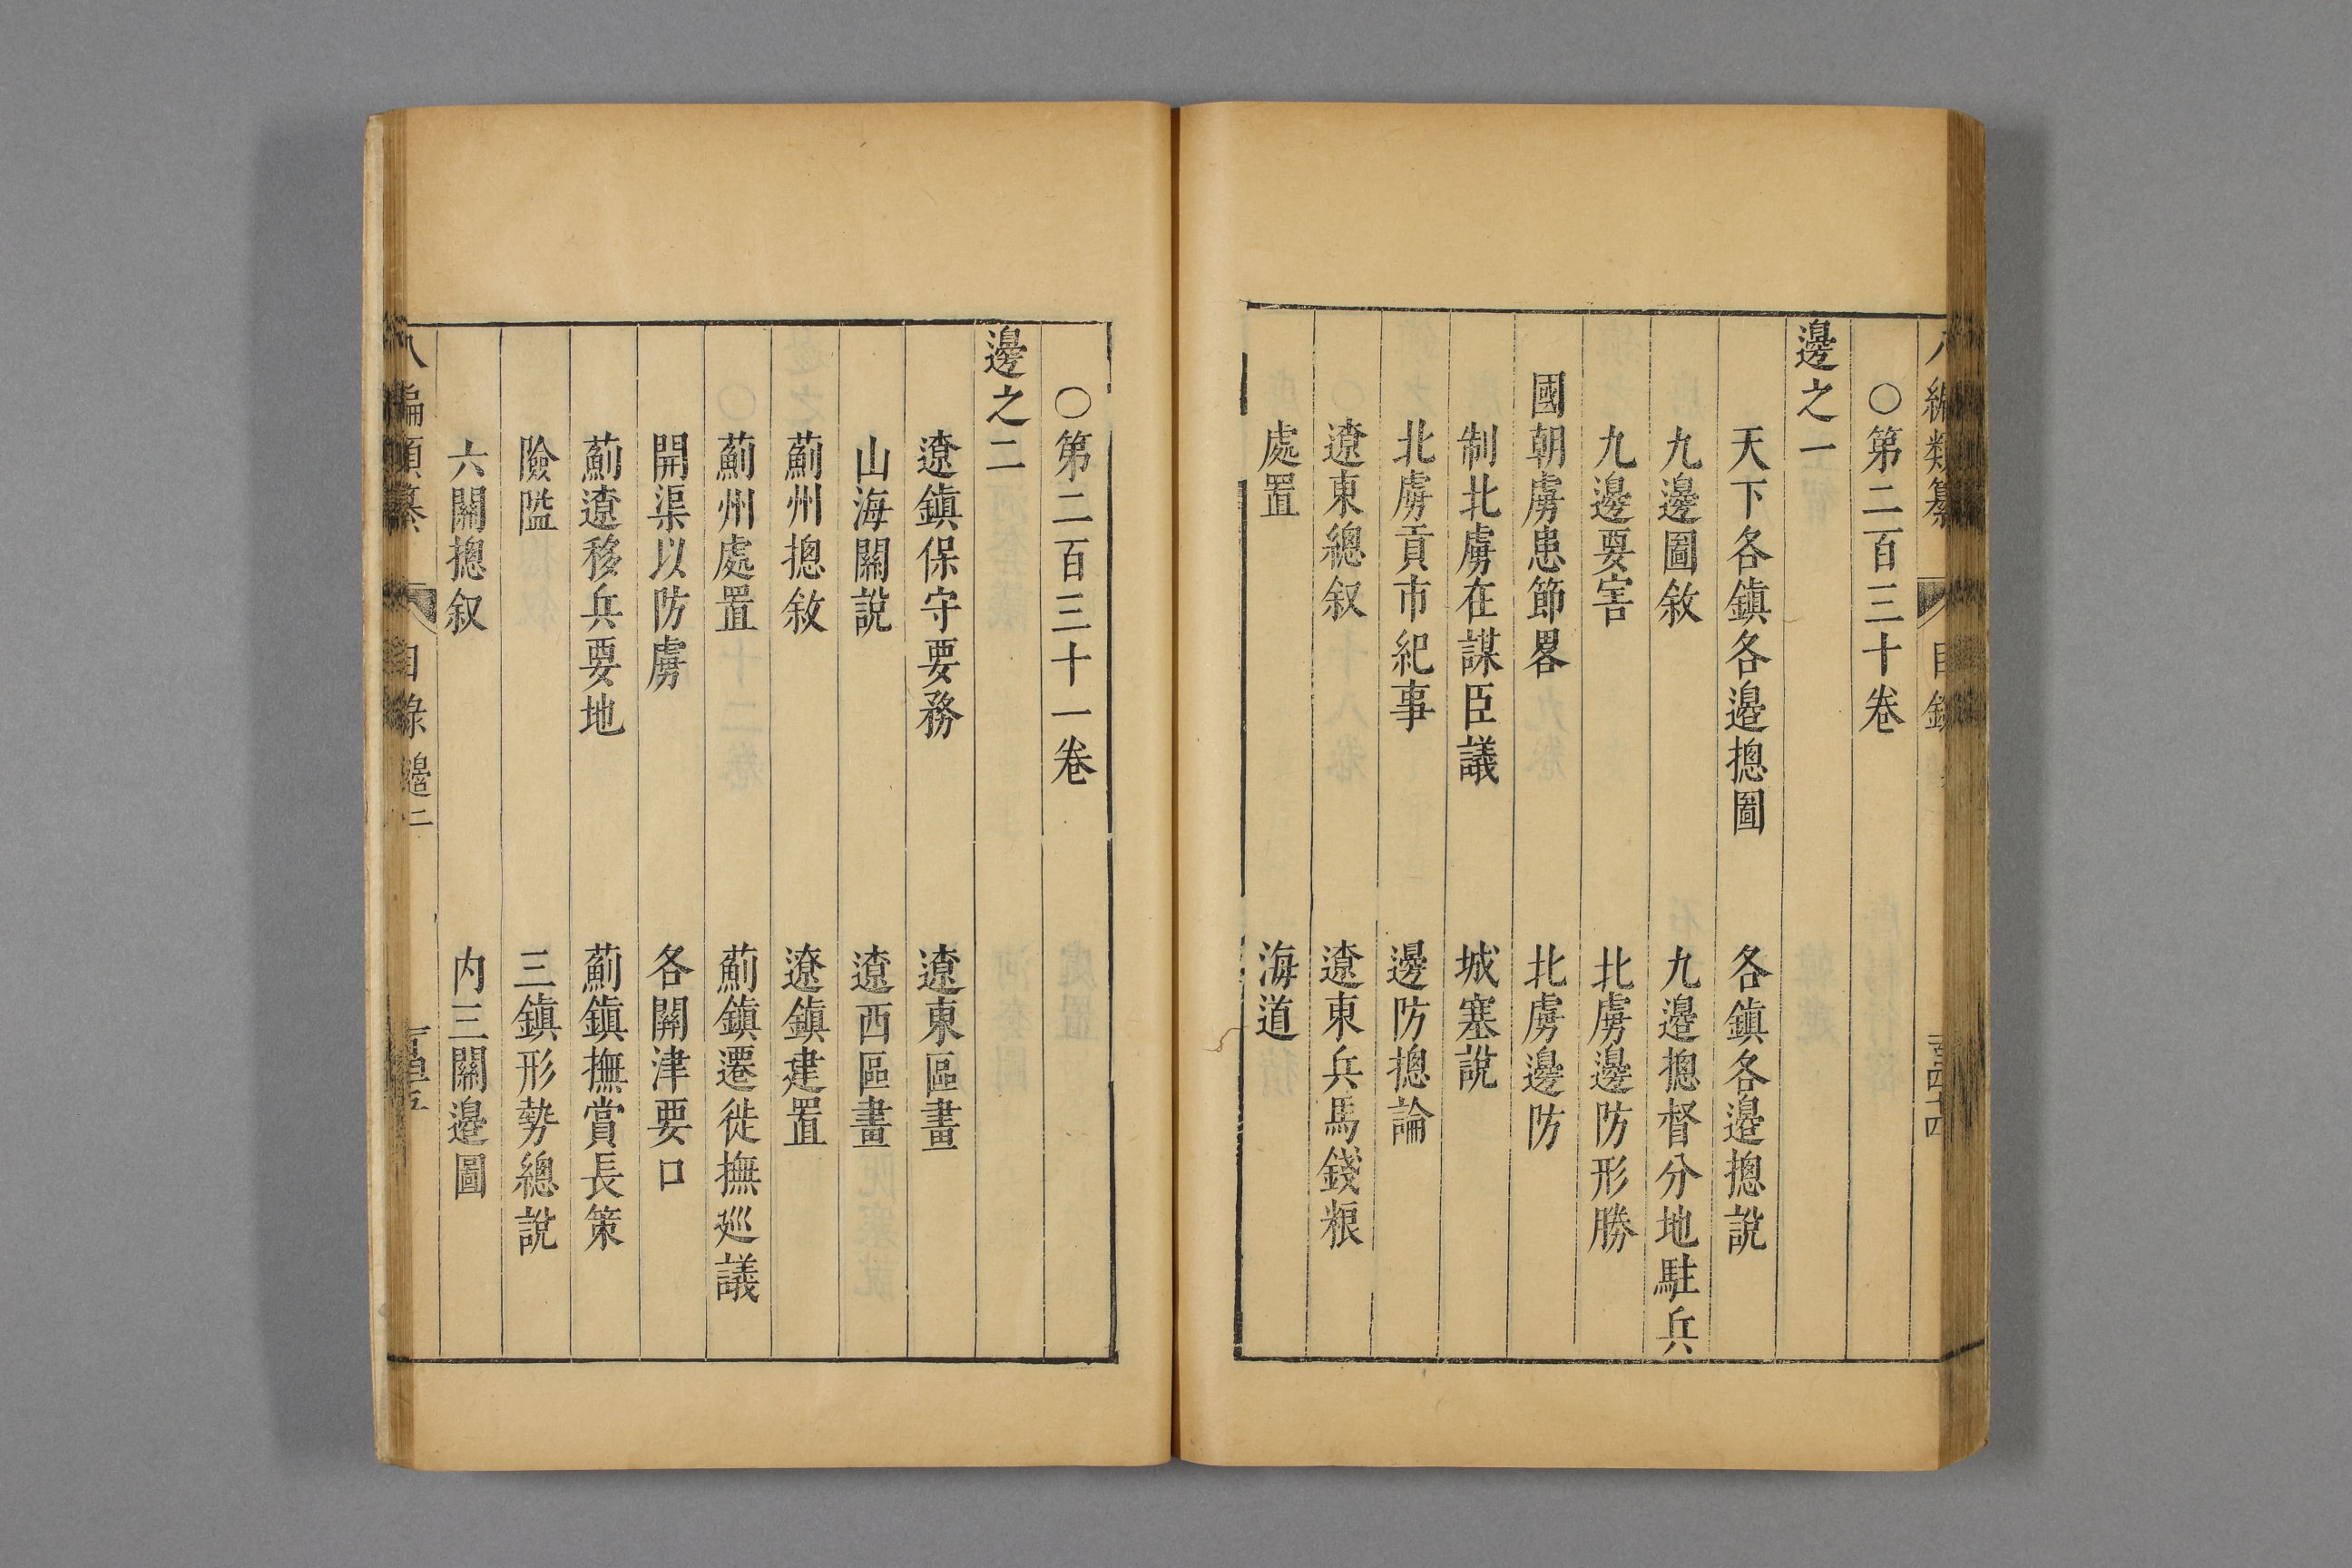 ○第二百三十卷
邊之一
天下各鎮各邉摠圖　各鎮各邉摠說
九邊圖敘　九邉摠督分地駐兵
九邊要害　北虜邊防形勝
國朝虜患節畧　北虜邊防
制北虜在謀臣議　城塞說
北虜貢市紀事　邊防摠論
遼東總叙　遼東兵馬錢粮
處置　海道
○第二百三十一卷
邊之二
遼鎮保守要務　遼東區畫
山海關說　遼西區畫
薊州摠敘　遼鎮建置
薊州處置　薊鎮遷徙撫廵議
開渠以防虜　各關津要口
薊遼移兵要地　薊鎮撫賞長策
險隘　三鎮形勢總說
六關摠叙　内三關邉圖
八編類纂　目錄　邉二